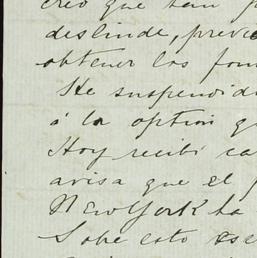 creo que tan
deslinde, previ
obtener los fon
He suspendid
á la option q
Hoy recibi ca
avisa que el
New York ha
Sobre esto ese